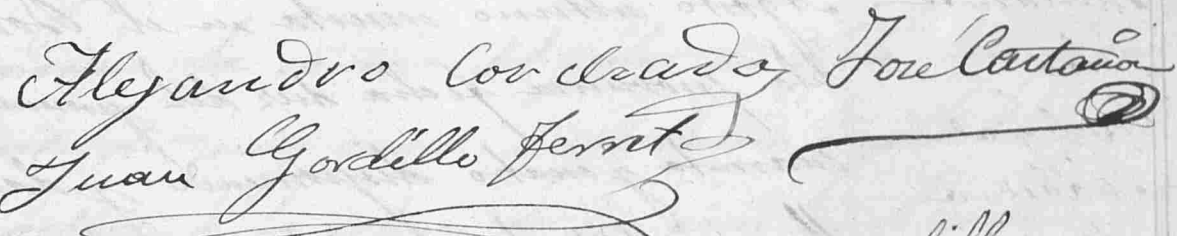 Alejandro Corchado José Castaño
Juan Gordillo